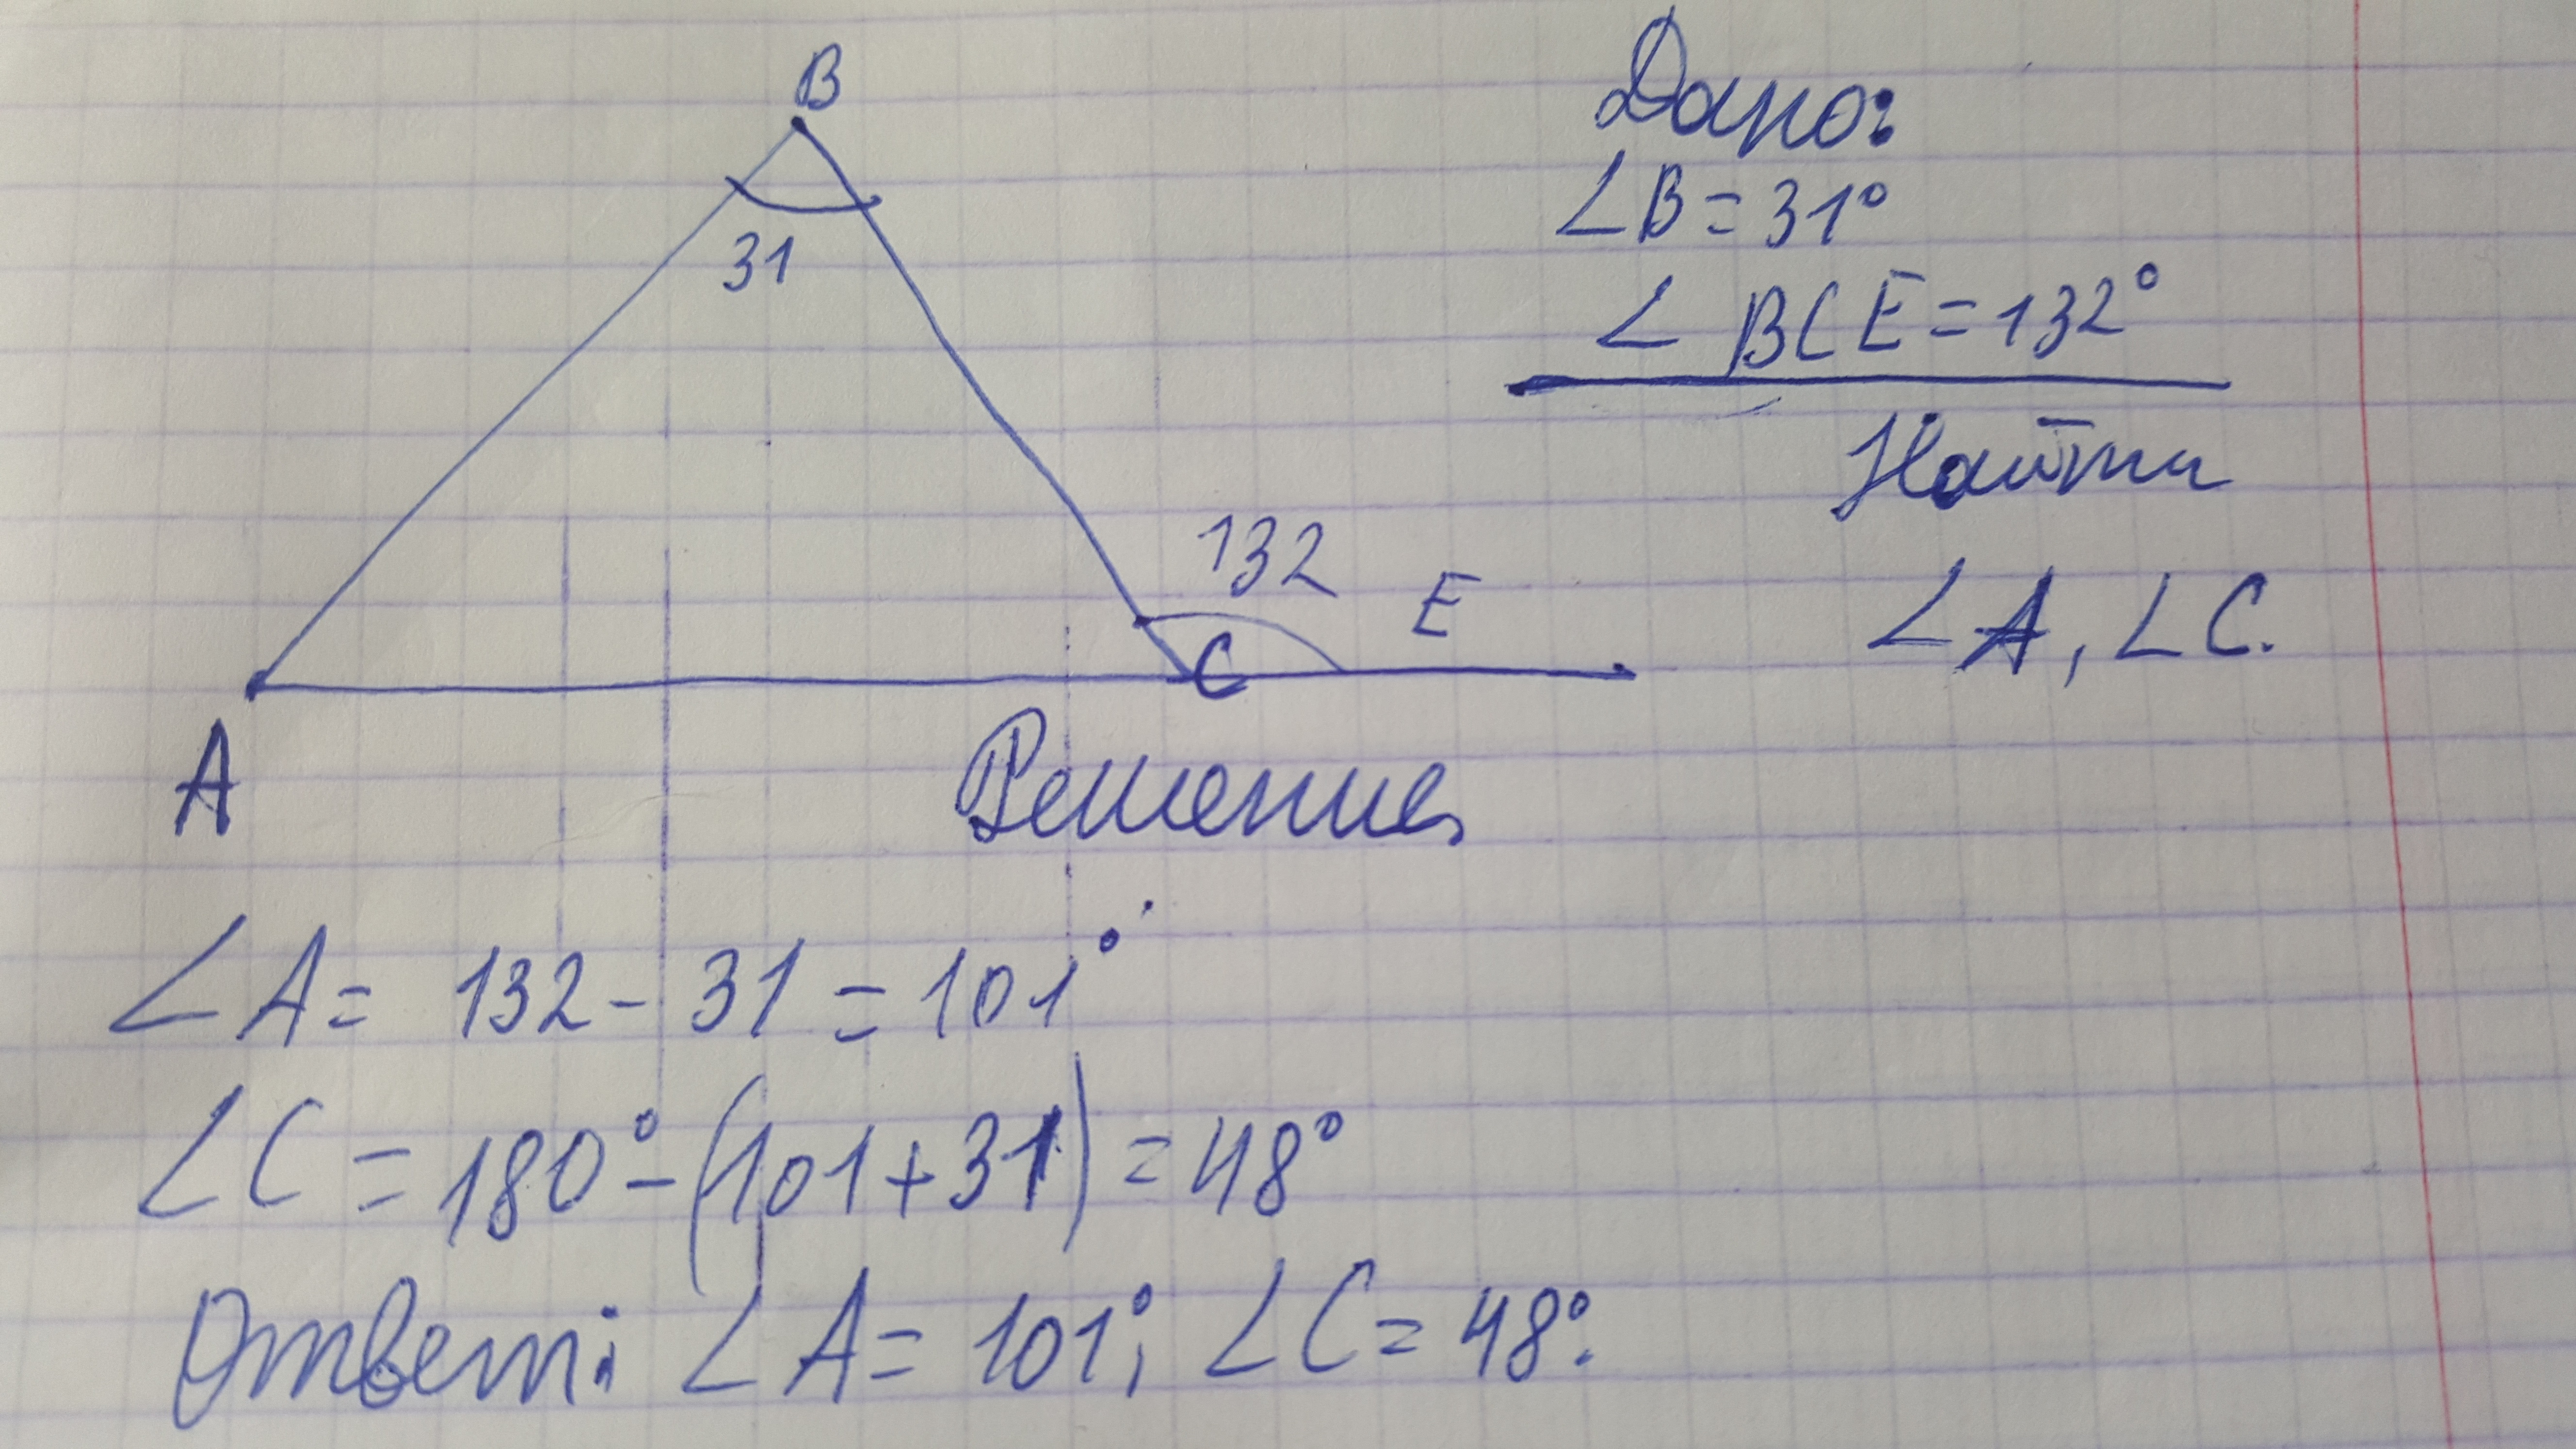 B
31
132
E
C
A
Дано:
∠B=31°
∠ BCE=132°
Найти
∠A, ∠C.
Решение,
∠A= 132-31=101°
∠C=180°-(101+31)=48°
Ответ: ∠A=101°; ∠C=48°.